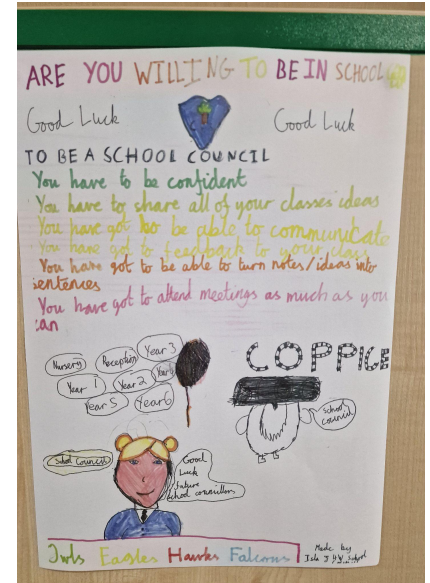 ARE YOU WILLING TO BE IN SCHOOL
Good Luck
Good Luck
TO BE A SCHOOL COUNCIL
You have to be confident
You have to share all of your classes ideas
You have got to be able to communicate
You have got to feedback to your class
You have got to be able to turn notes/ideas into
sentences
You have got to attend meetings as much as you
can
Nursery
Reception
Year 3
Year 1
Year 2
Year 4
Year 5
Year 6
COPPICE
school
council
School Council
Good
Luck
future
school councillors
Owls Eagles Hawks Falcons
Made by
Isla J